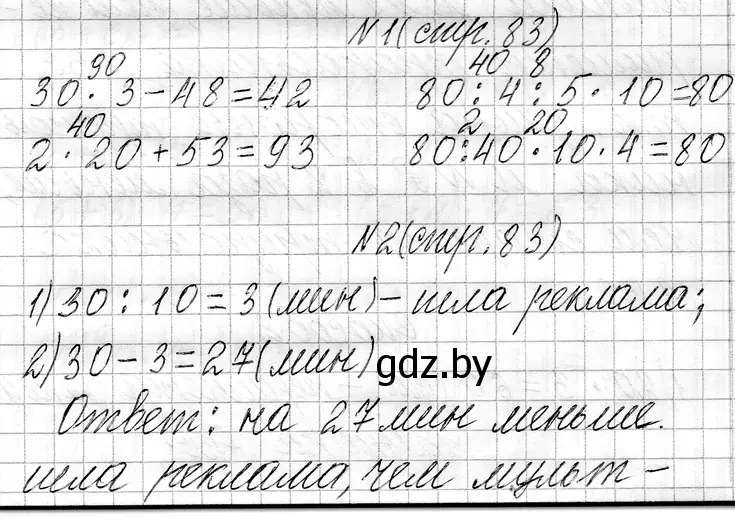 N1(стр. 83)
90
30 · 3 - 48 = 42
40 8
80 : 4 : 5 · 10 = 80
40
2 · 20 + 53 = 93
2 20
80 : 40 · 10 · 4 = 80
N2(стр. 83)
1) 30 : 10 = 3 (мин) - шла реклама;
2) 30 - 3 = 27 (мин)
gdz.by
Ответ: на 27 мин меньше.
шла реклама, чем мульт-